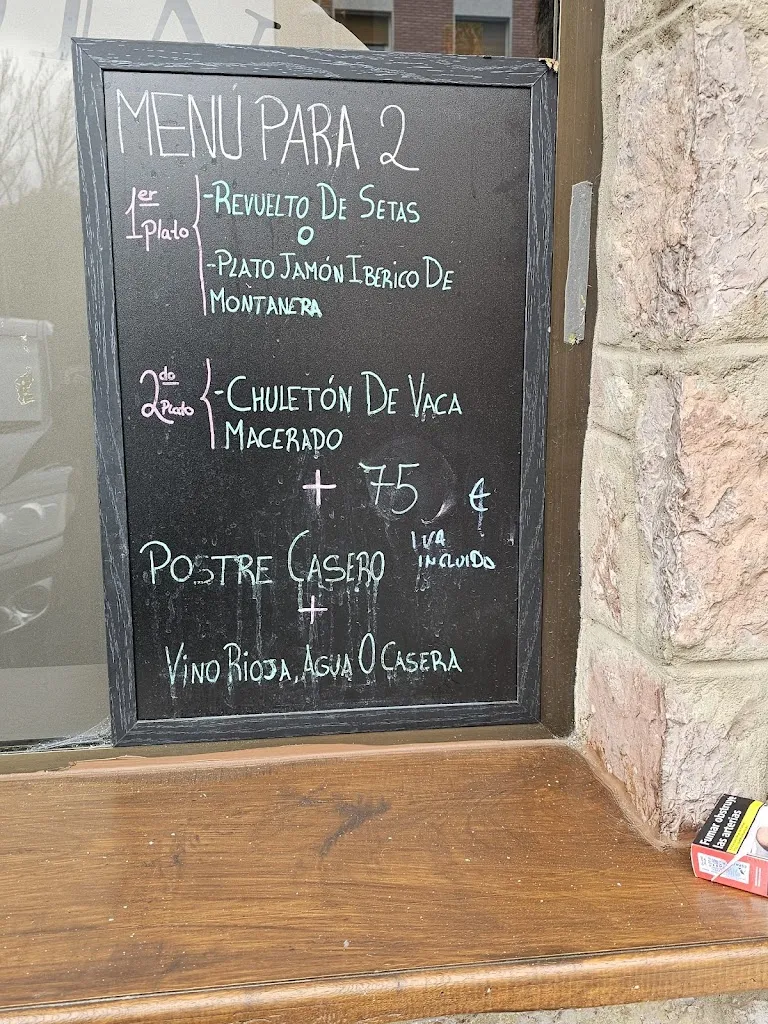 MENÚ PARA 2
1er Plato
-REVUELTO DE SETAS
O
-PLATO JAMÓN IBERICO DE
MONTANERA
2do Plato
-CHULETÓN DE VACA
MACERADO
+ 75 €
IVA
INCLUIDO
POSTRE CASERO
+
VINO RIOJA, AGUA O CASERA
Fumar obstruye
las arterias